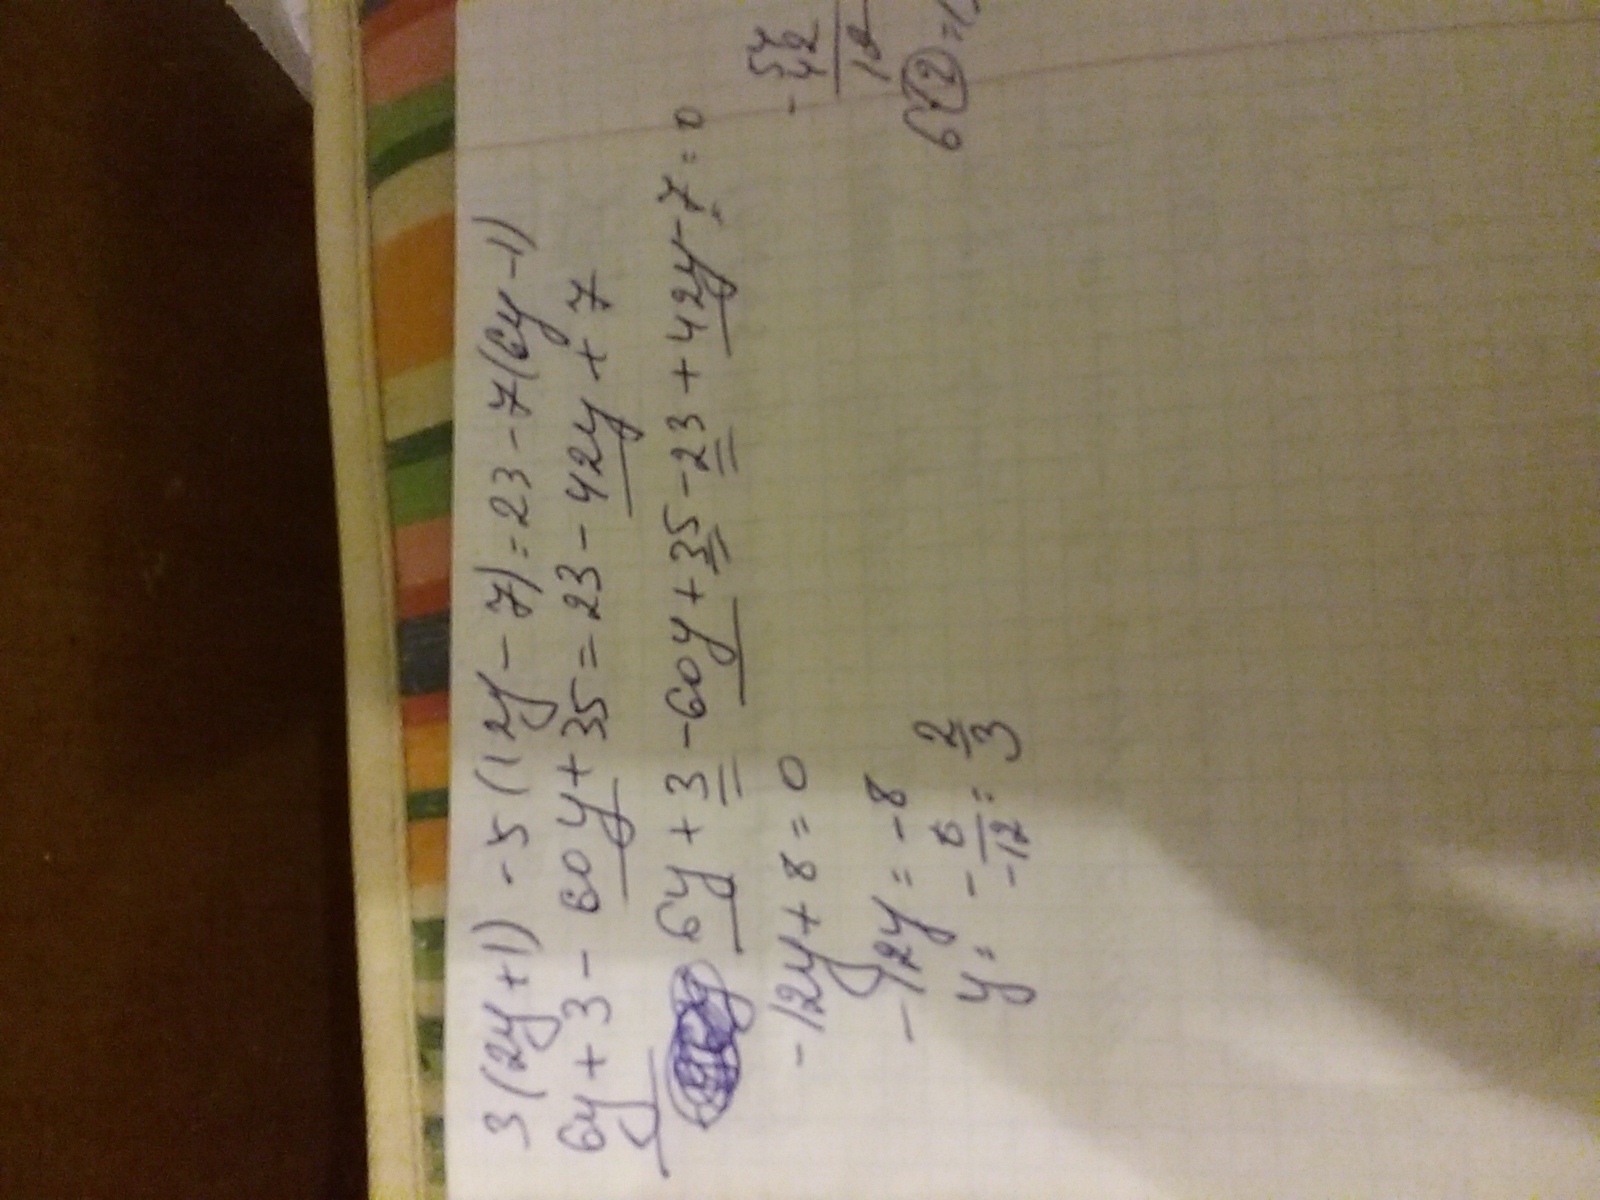 3(2y+1)-5(12y-7)=23-7(6y-1)
6y+3-60y+35=23-42y+7
6y+3-60y+35-23+42y-7=0
-12y+8=0
-12y=-8
y=--8/-12=2/3
-54
42
12